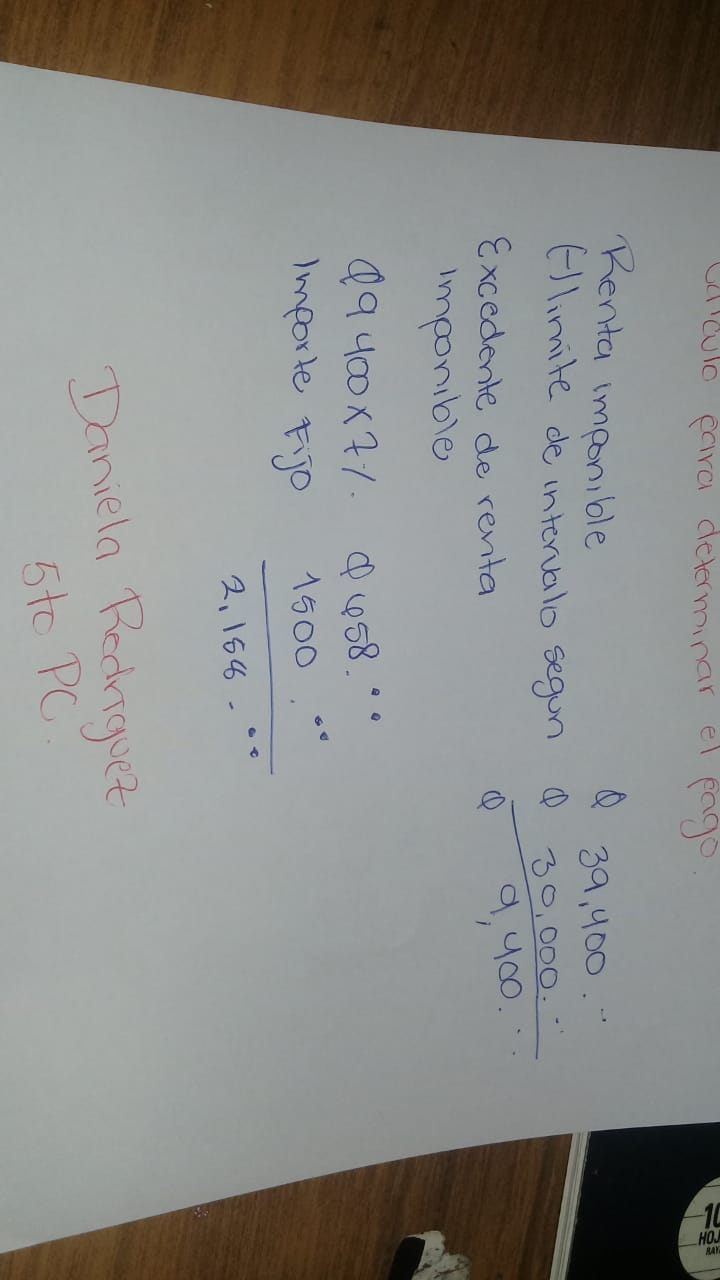 Calculo para determinar el pago.
Renta imponible Q 39,400.
(-) limite de intervalo segun Q 30,000.
Excedente de renta Q 9,400.
imponible
Q 9 400 x 7%. Q 658.
Importe Fijo 1500.
2,158.
Daniela Rodriguez
5to PC.
10
HOJ
RAY